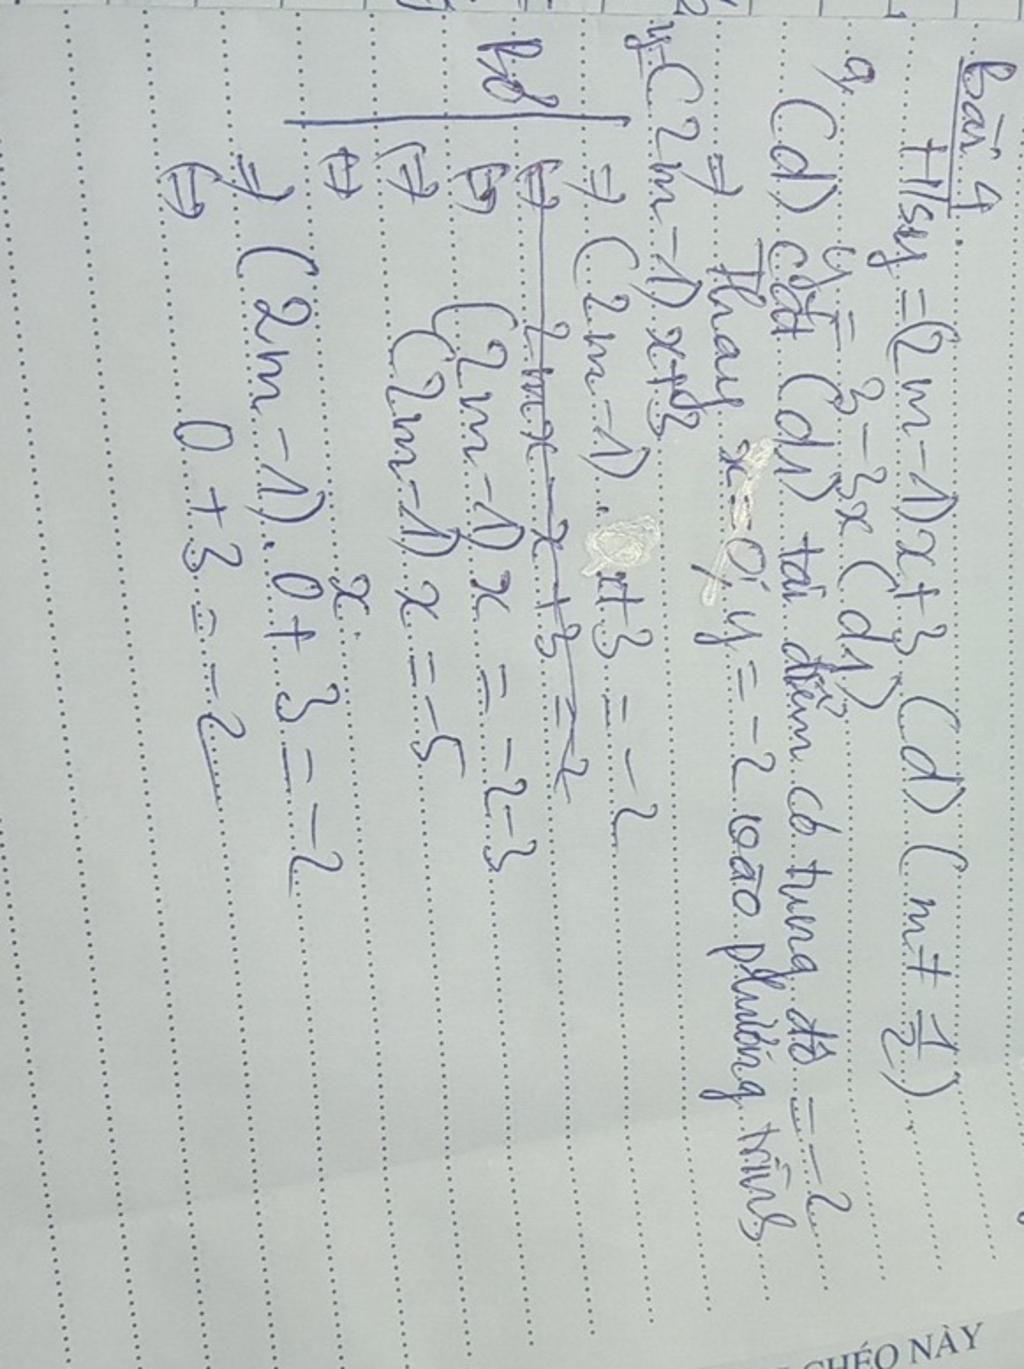 Bài 1.
Hsy = (2m-1)x+3 (d) (m ≠ 1/2).
a, y = 3-3x (d1)
(d) cắt (d1) tại điểm có tung độ = -2
⇒ Thay x = 0; y = -2 vào phương trình
y=(2m-1)x+3
⇒ (2m-1). x+3 = -2
⇔ 2mx - x + 3 = -2
⇔ (2m-1)x = -2-3
⇔ (2m-1)x = -5
⇔ x
⇒ (2m-1).0+3 = -2
⇔ 0+3 = -2
CHÉO NÀY